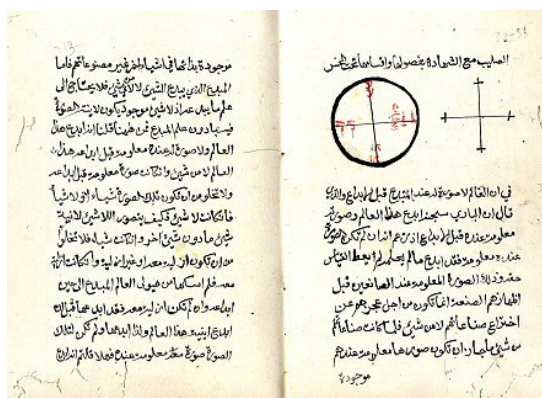 الصليب مع الشهادة بفصولها واقسامها تحت
في ان العالم لا صورة له عند المبدع قبل الابداع والذي
قال ان الباري سبحنه ابدع هذا العالم وصورته
معلومة عنده قبل الابداع اذ زعم انه ان لم تكن صورة
عنده معلومة فقد ابدع ما لم يعلم لم يعط القياس
حقه وذلك الصورة المعلومة عند الصانعين قبل
اظهارهم الصنعة انما تكون من اجل عجزهم عن
اختراع صناعاتهم لا من شئ فلما كانت صناعاتهم
من شئ ما جاز ان تكون صورها معلومة عندهم
موجودة
موجودة بذاتها في اشياء اخر غير مصنوعاتهم فاما
المبدع الذي يبدع الشئ لا من شئ فلا يحتاج الى
علم ما يبدعه اذ لا شئ موجود يكون الصورة
فيه علم المبدع فمن ههنا قلنا انه ابدع هذا
العالم ولا صورة له عنده معلومة قبل ابداعه هذا
العالم لا من شئ وان كانت صورة معلومة قبل ابداعه
ولا تخلو من ان تكون تلك الصورة شياء او لا شياء
فان كانت لا شئ فكيف يتصور اللا شئ
شئ ما دون شئ اخر وان كانت شياء فلا تخلو
من ان تكون ازلية معه او غير ازلية وان كانت ازلية
معه فلم امسكها من هيولى العالم المبدع الى حين
ابداعه وان لم تكن ازلية معه فقد ابدعها قبل ان
ابدع هذا العالم واذا ابدعها ولم تكن لتلك
الصورة صورة معلومة عنده فهلا قلتم انه ابدع